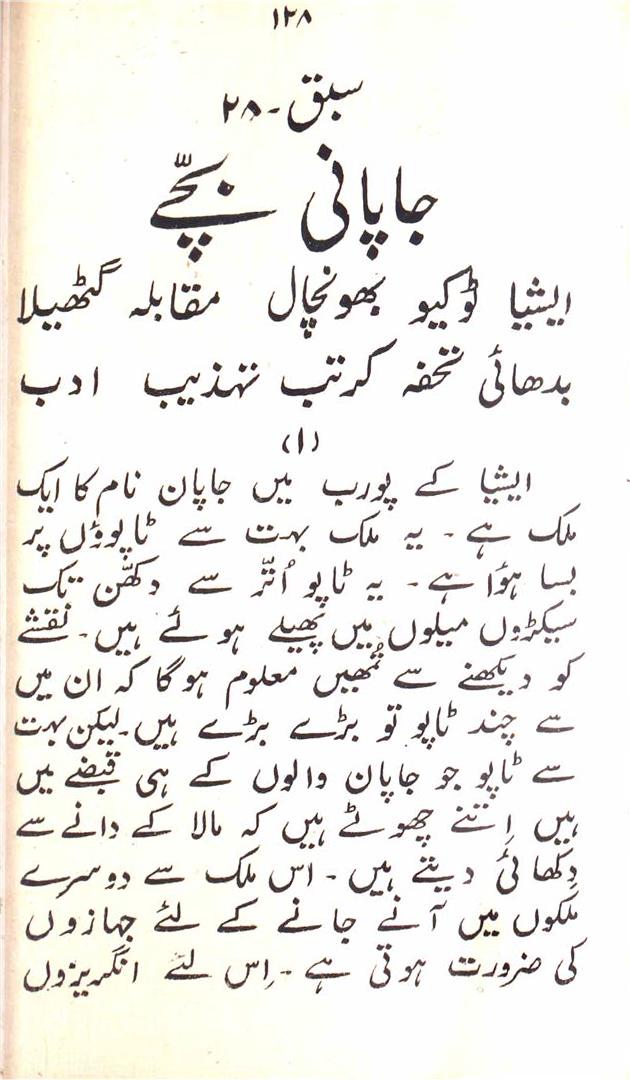 ۱۲۸
سبق - ۲۸
جاپانی بچّے
ایشیا ٹوکیو بھونچال مقابلہ گٹھیلا
بدھائی تحفہ کرتب تہذیب ادب
(۱)
ایشیا کے پورب میں جاپان نام کا ایک
ملک ہے - یہ ملک بہت سے ٹاپوؤں پر
بسا ہؤا ہے - یہ ٹاپو اُتّر سے دکھّن تک
سیکڑوں میلوں میں پھیلے ہوئے ہیں - نقشے
کو دیکھنے سے تُمھیں معلوم ہوگا کہ ان میں
سے چند ٹاپو تو بڑے بڑے ہیں - لیکن بہت
سے ٹاپو جو جاپان والوں کے ہی قبضے میں
ہیں اِتنے چھوٹے ہیں کہ مالا کے دانے سے
دِکھائی دیتے ہیں - اس ملک سے دوسرے
ملکوں میں آنے جانے کے لئے جہازوں
کی ضرورت ہوتی ہے - اِس لئے انگریزوں